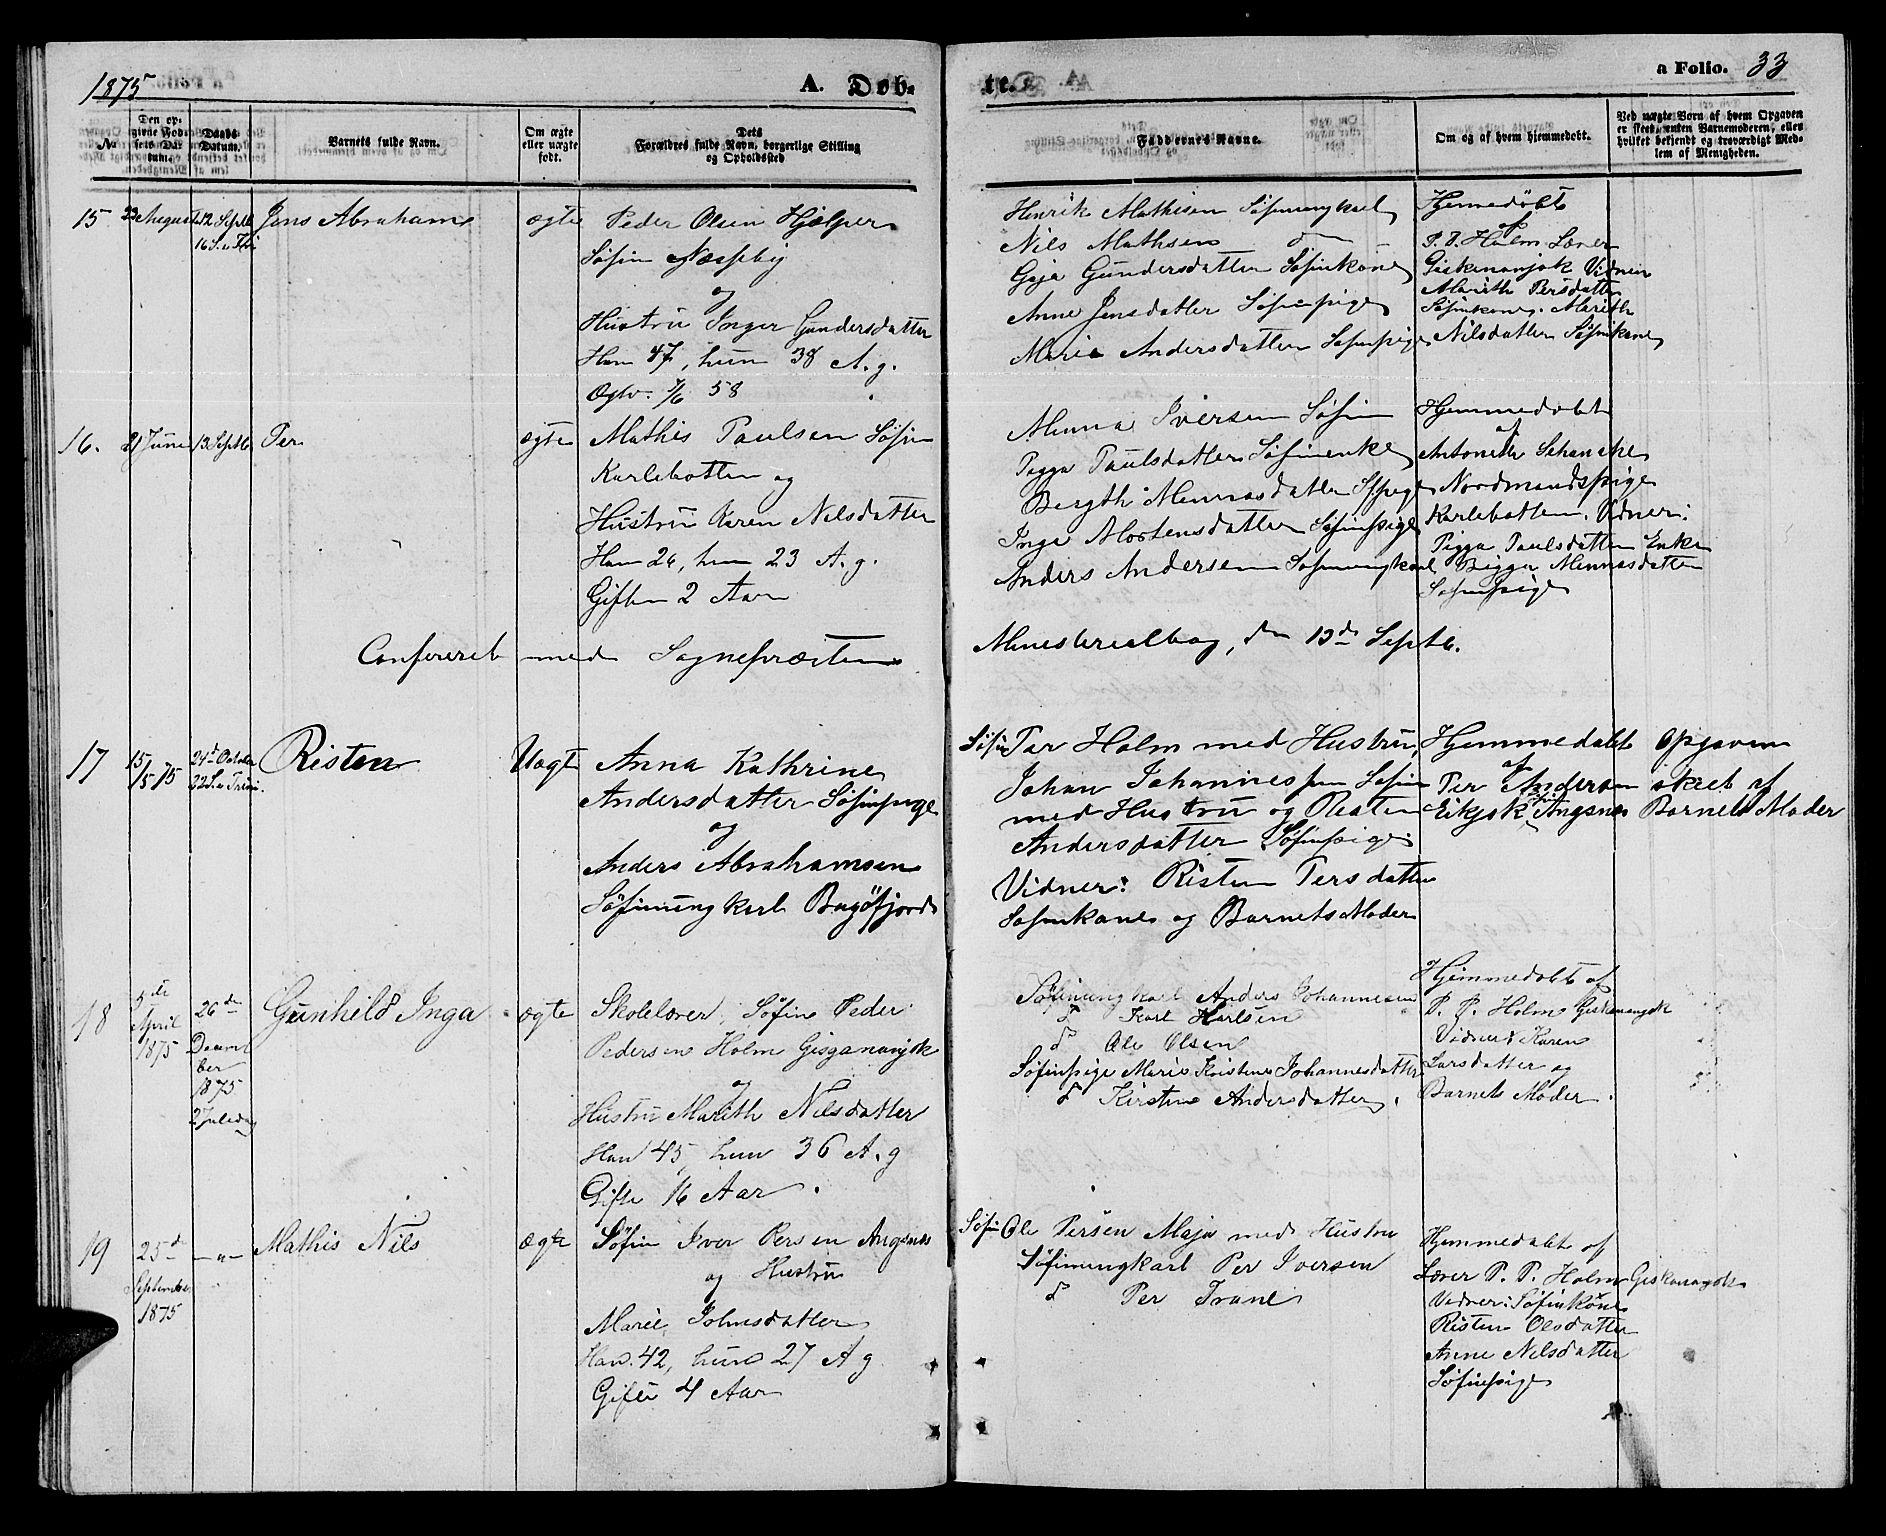 1875
A. Døb-
te.
a Folio. 33
No
Den op-
givne Fød-
sels Da-
tum.
Daabs
Datum.
Barnets fulde Navn.
Om ægte
eller uægte
født.
Dets
Forældres fulde Navn, borgerlige Stilling
og Opholdssted
Faddernes Navne.
Om og af hvem hjemmedøbt.
Ved uægte Børn af hvem Opgaven
er skeet, enten Barnemoderen, eller
hvilket bekjendt og troværdigt Med-
lem af Menigheden.
15
23 August
12 Septb
16 S. e Tri
Jens Abraham
ægte
Peder Olsen Hjælper
Søfin Næsseby
og
Hustru Inger Gundersdatter
Han 47, hun 38 A. g.
Ogtv. 7/6 58
Henrik Mathisen Søfinungkarl
Nils Mathsen do
Gaja Gundersdatter Søfinkone
Anne Jensdatter Søfinpige
Marie Andersdatter Søfinpige
Hjemmedøbt
af
P. P. Holm Lærer
Giskenanjok Vidner
Marith Persdatter
Søfinkone, Marith
Nilsdatter Søfinkone
16.
21 Juni
13 Septb
Per
ægte
Mathis Paulsen Søfin
Karlebotten og
Hustru Karen Nilsdatter
Han 26, hun 23 A. g.
Giften 2 Aar
Minna Iversen Søfin
Pigga Paulsdatter Søfinenke
Bergth Minnasdatter Sfpige
Inga Mortensdatter Søfinpige
Anders Andersen Søfinungkarl
Hjemmedøbt
af
Antonette Schanche
Nordmandspige
Karlebotten. Vidner:
Pigga Paulsdatter Enke
Bigga Minnasdatter
Søfinpige
Confereret med Sognepræsten
Ministerialbog, den 13de Septb.
17
15/5 75
24d October
22 S. e Trini.
Risten
Uægte
Anna Kathrine
Andersdatter Søfinpige
og
Anders Abrahamsen
Søfinungkarl Bugøfjord
Søfin Per Holm med Hustru,
Johan Johannessen Søfin
med Hustru og Risten
Andersdatter Søfinpige
Vidner: Risten Persdatter
Søfinkone og Barnets Moder
Hjemmedøbt
af
Per Andersen
Eikjok Angsnes
Opgaven
skeet af
Barnets Moder
18
5te
April
1875
26de
Decem
ber
1875
2 Juledag
Gunhild Inga
ægte
Skolelærer, Søfin Peder
Pedersen Holm Gisgananjok
og
Hustru Marith Nilsdatter
Han 45, hun 36 A. g
Gifte 16 Aar.
Søfinungkarl Anders Johannesen
do Karl Karlsen
do Ole Olsen
Søfinpige Marie Kristine Johannesdatter
do Kirstine Andersdatter.
Hjemmedøbt af
P. P. Holm Giskenanjok
Vidner: Karen
Larsdatter og
Barnets Moder.
19
25de
September
1875
—"—
Mathis Nils
ægte
Søfin Iver Persen Angsnes
og Hustru
Marie Johnsdatter
Han 42, hun 27 A g
Gifte 4 Aar
Søfin Ole Persen Maja med Hustru
Søfinungkarl Per Iversen
do Per Trane
Hjemmedøbt af
Lærer P. P. Holm Giskenanjok
Vidner: Søfinkone
Risten Olsdatter
Anne Nilsdatter
Søfinpige